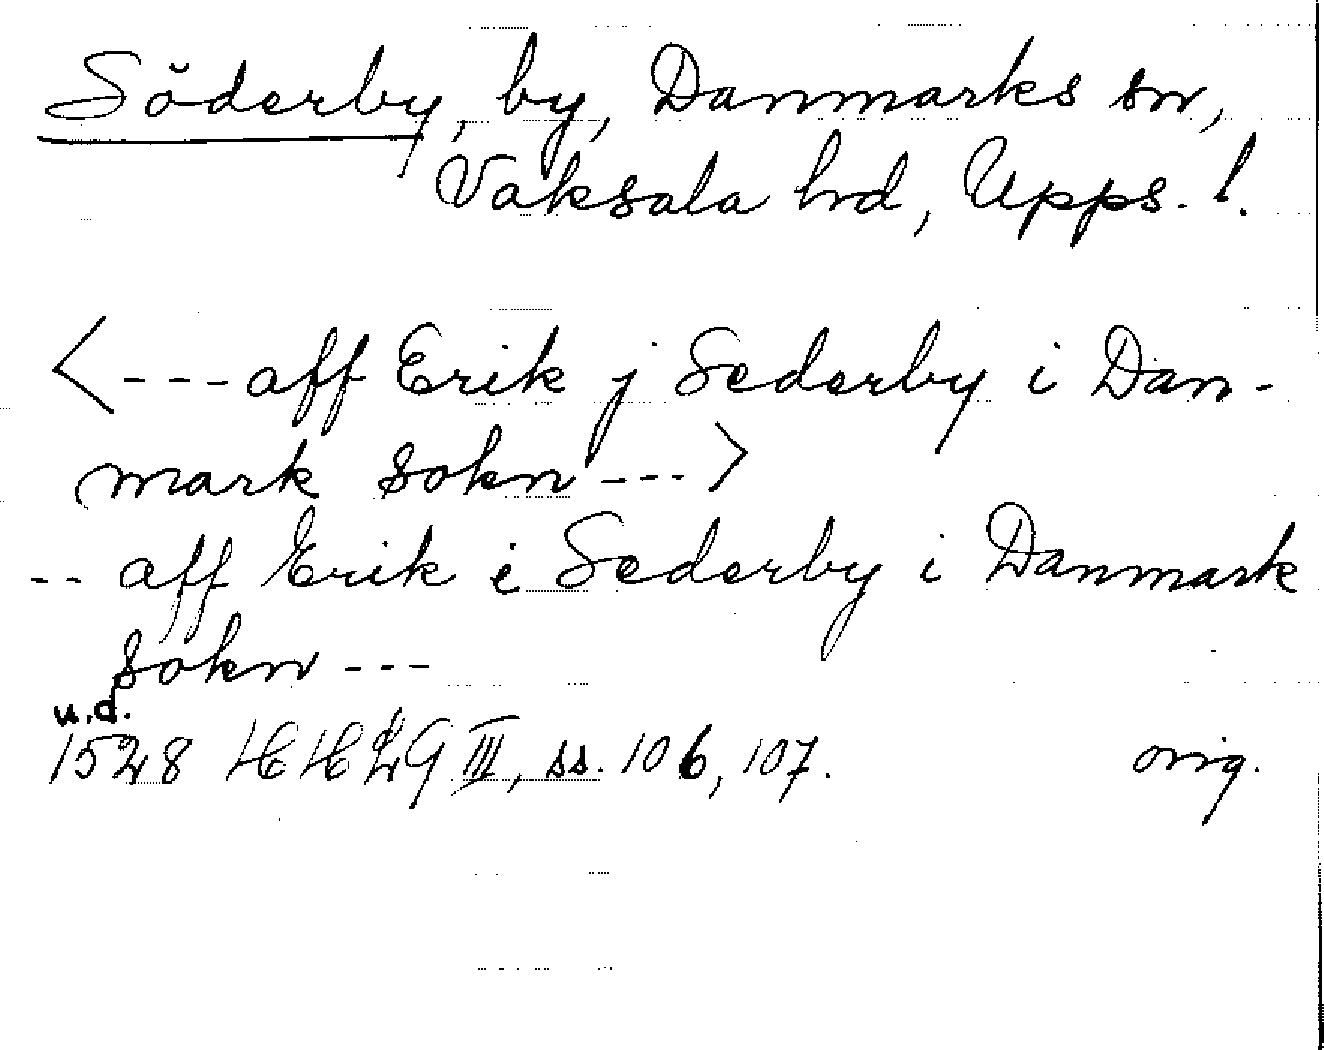 Söderby, by, Danmarks sn,
Vaksala hd, Upps. l.
<---aff Erik j Sederby i Dan-
mark sokn --->
-- aff Erik i Sederby i Danmark
sokn ---
u.d.
1528 HHLG III, ss. 106, 107. orig.